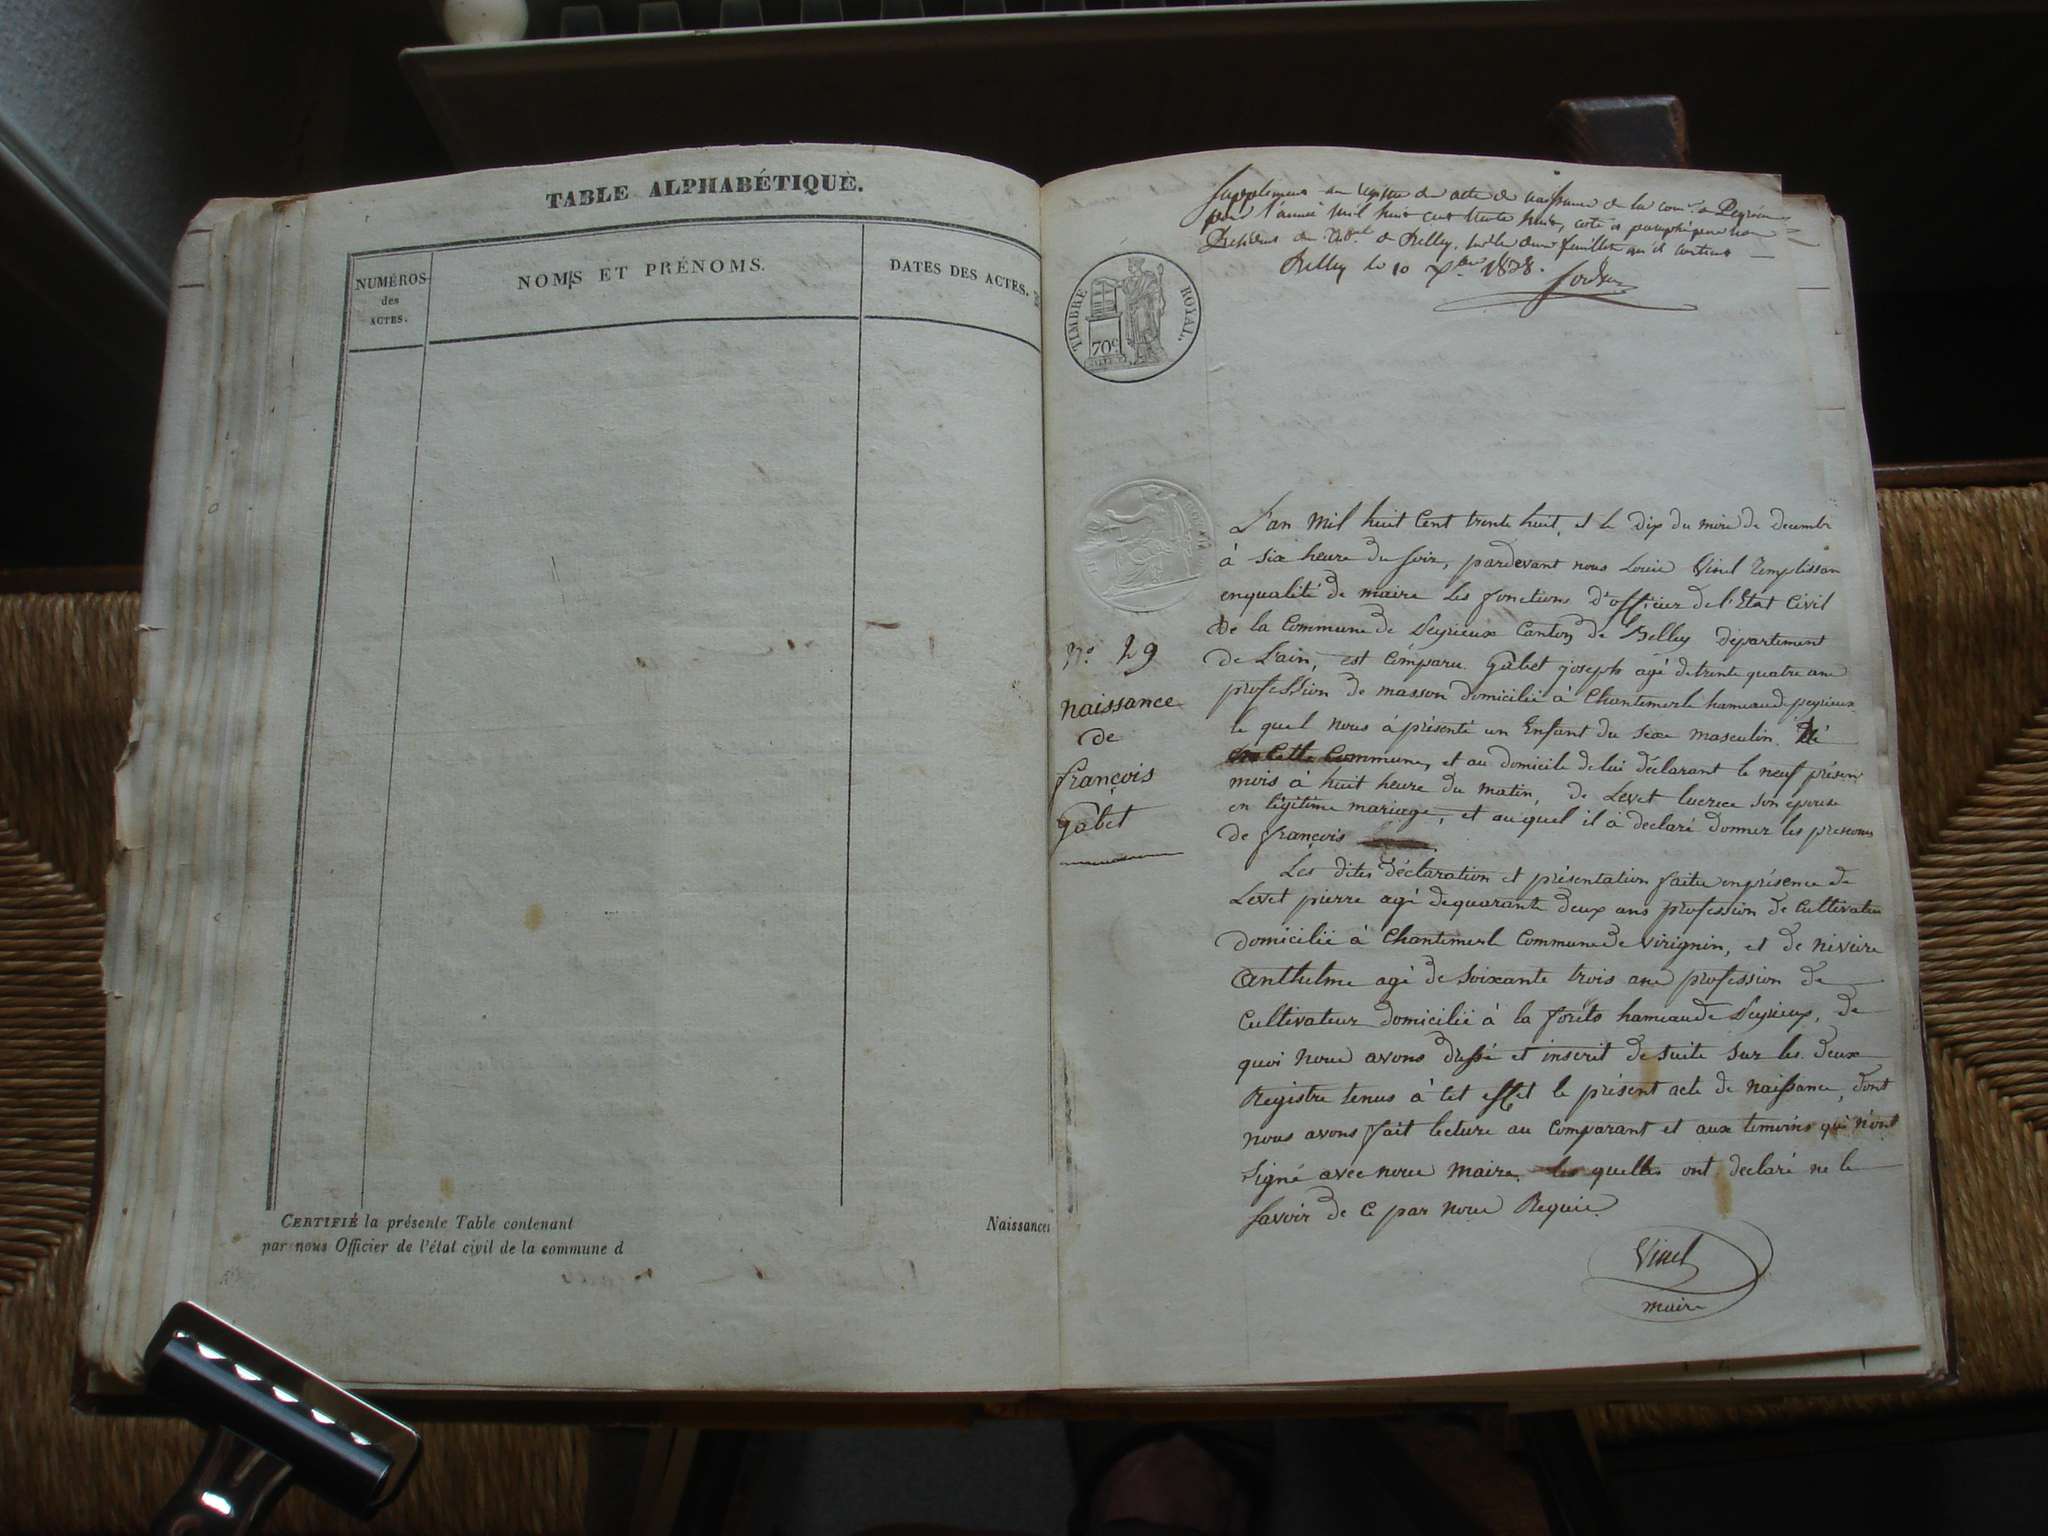 TABLE ALPHABÉTIQUE.
NUMÉROS
des
ACTES.
NOMS ET PRÉNOMS.
DATES DES ACTES.
CERTIFIÉ la présente Table contenant
Naissances
par nous Officier de l'état civil de la commune d
Supplément au registre des actes de naissance de la com.ne de Peyrieu
pour l'année mil huit cent trente huit, coté et paraphé par nous
Président du de Belley, sur les deux feuillets qu'il contient
Belley le 10 Xbre 1838.
TIMBRE ROYAL
70c
L'an mil huit Cent trente huit, et le dix du mois de decembre
à six heure du soir, pardevant nous Louis Vinel remplissan
enqualité de maire les fonctions d'officier de l'Etat Civil
de la Commune de Peyrieux Canton de Belley département
de L'ain, est Comparu Gâbet joseph agé detrente quatre ans
profession de masson domicilié à Chantemerle hameau de peyrieux
le quel nous à présenté un Enfant du sexe masculin. Né
en Cette Commune, et au domicile de lui déclarant le neuf présen
mois à huit heure du matin, de Levet lucrece son épouse
en légitime mariage, et auquel il à declaré donner les prenoms
de françois
Les dites déclaration et présentation faites enprésence de
Levet pierre agé dequarante deux ans profession de Cultivateur
domicilié à Chantemerle Commune de virignin, et de nivière
Anthelme agé de soixante trois ans profession de
Cultivateur domicilié à la forêts hameau de Peyrieux, de
quoi nous avons dressé et inscrit de suite sur les deux
Registre tenus à cet effet le présent acte de naissance, dont
nous avons fait lecture au Comparant et aux temoins qui n'ont
signé avec nous maire, les quelles ont declaré ne le
savoir de ce par nous Requis.
Vinel
maire
N.º 29
naissance
de
françois
gâbet